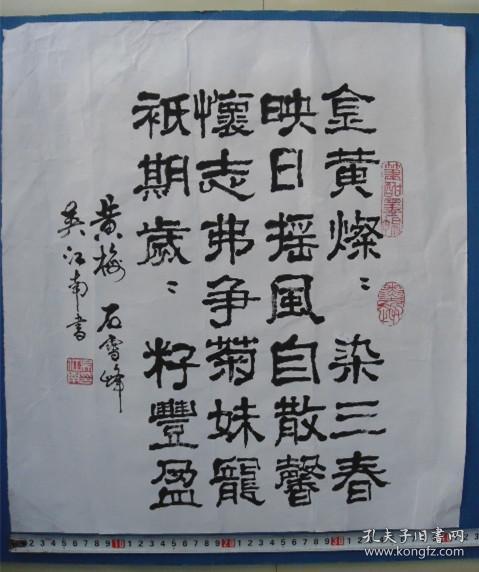 金黄燦〻染三春
映日摇風自散馨
懷志弗争菊妹寵
衹期歲〻籽豐盈
黄梅 石雪峰
江南書
孔夫子旧书网
www.kongfz.com